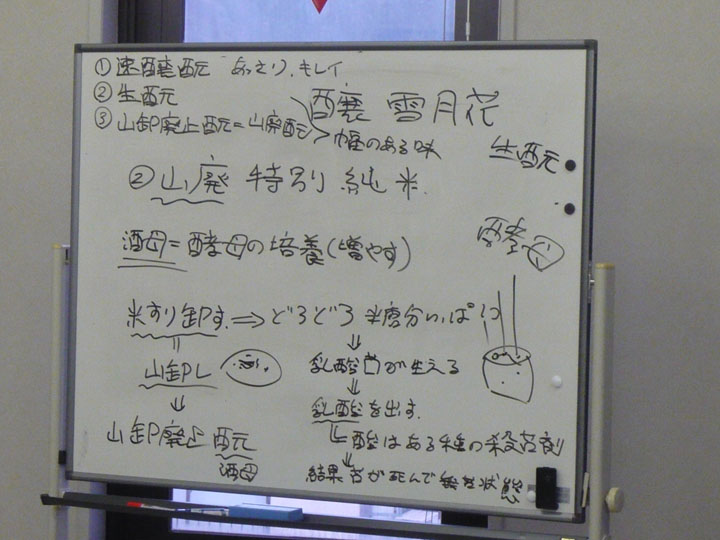 ①速醸酛 あっさり、キレイ
②生酛
③山卸廃止酛=山廃酛 > 幅のある味
醸 雪月花
生酛
②山廃 特別純米
酒母=酵母の培養(増やす)
酵母
米すり卸す ⇒ どろどろ 米糖分いっぱい
山卸し
乳酸菌が生える
乳酸を出す
山卸廃止酛
酸はある種の殺菌剤
酒母
結果菌が死んで無菌状態